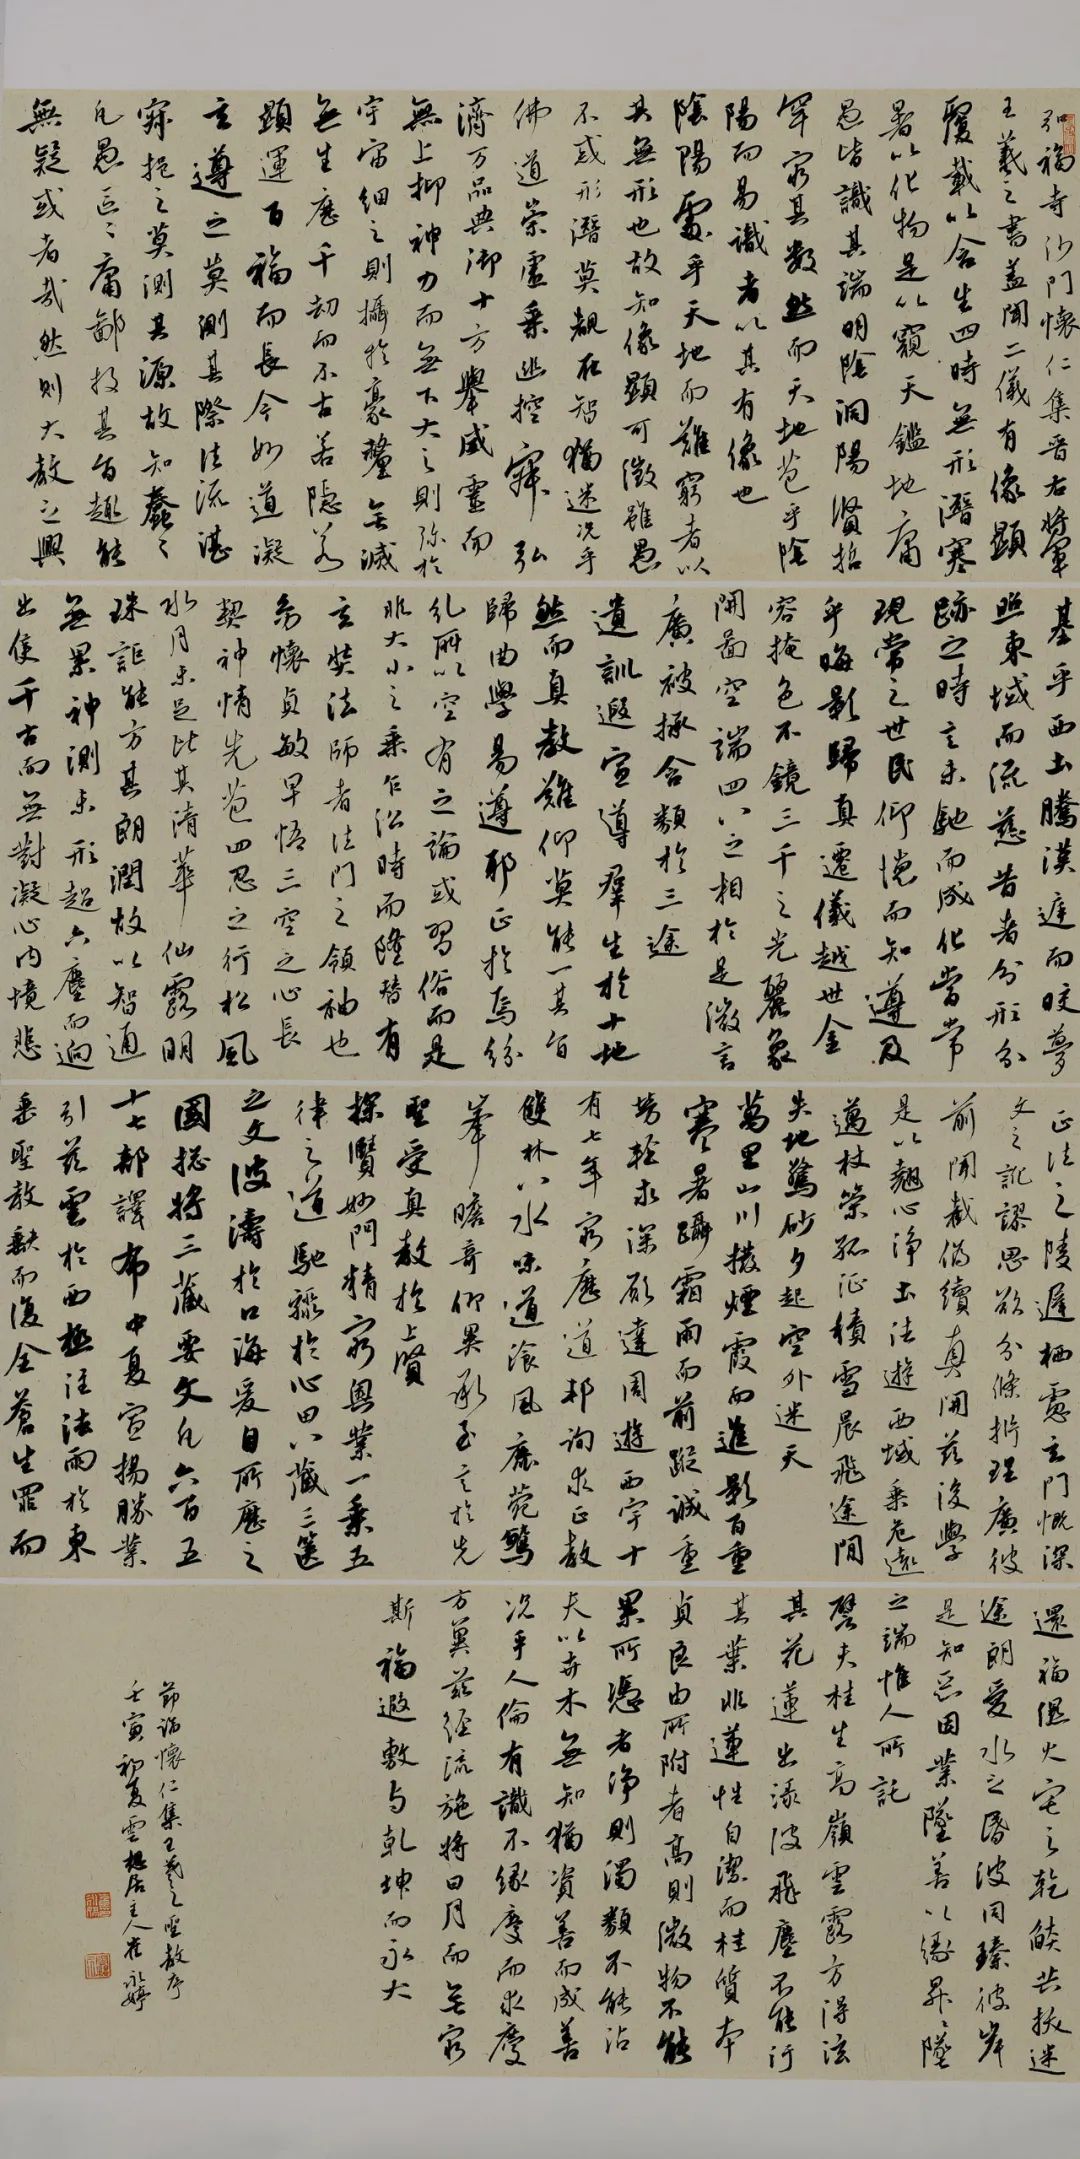 弘福寺沙門懷仁集晉右將軍
王羲之書蓋聞二儀有像顯
覆載以含生四時無形潛寒
暑以化物是以窺天鑑地庸
愚皆識其端明陰洞陽賢哲
罕窮其數然而天地苞乎陰
陽而易識者以其有像也
陰陽處乎天地而難窮者以
其無形也故知像顯可徵雖愚
不或形潛莫覩在智猶迷況乎
佛道崇虛乘幽控寂弘
濟万品典御十方舉威靈而
無上抑神力而無下大之則弥於
宇宙細之則攝於豪釐无滅
无生歷千劫而不古若隱若
顯運百福而長今妙道凝
玄遵之莫測其際法流湛
寂挹之莫測其源故知蠢〻
凡愚區〻庸鄙投其旨趣能
無疑或者哉然則大教之興
基乎西土騰漢庭而皎夢
照東域而流慈昔者分形分
跡之時言未馳而成化當常
現常之世民仰德而知遵及
乎晦影歸真遷儀越世金
容掩色不鏡三千之光麗象
開圖空端四八之相於是微言
廣被拯含類於三途
遺訓遐宣導群生於十地
然而真教難仰莫能一其旨
歸曲學易遵耶正於焉紛
糺所以空有之論或習俗而是
非大小之乘乍沿時而隆替有
玄奘法師者法門之領袖也
幼懷貞敏早悟三空之心長
契神情先苞四忍之行松風
水月未足比其清華仙露明
珠詎能方其朗潤故以智通
無累神測未形超六塵而迥
出隻千古而無對凝心內境悲
正法之陵遲栖慮玄門慨深
文之訛謬思欲分條析理廣彼
前聞截偽續真開茲後學
是以翹心淨土法遊西域乘危遠
邁杖策孤征積雪晨飛途閒
失地驚砂夕起空外迷天
萬里山川撥煙霞而進影百重
寒暑躡霜雨而前蹤誠重
勞輕求深願達周遊西宇十
有七年窮歷道邦詢求正教
雙林八水味道飡風鹿菀鷲
峯瞻奇仰異承至言於先
聖受真教於上賢
探賾妙門精窮奧業一乘五
律之道馳驟於心田八藏三篋
之文波濤於口海爰自所歷之
國揔將三藏要文凡六百五
十七部譯布中夏宣揚勝業
引慈雲於西極注法雨於東
垂聖教缺而復全蒼生罪而
還福濕火宅之乾燄共拔迷
途朗愛水之昏波同臻彼岸
是知惡因業墜善以緣昇〻墜
之端惟人所託
譬夫桂生高嶺雲露方得泫
其花蓮出淥波飛塵不能汙
其葉非蓮性自潔而桂質本
貞良由所附者高則微物不能
累所憑者淨則濁類不能沾
夫以卉木無知猶資善而成善
況乎人倫有識不緣慶而求慶
方冀茲經流施將日月而无窮
斯福遐敷与乾坤而永大
節臨懷仁集王羲之聖教序
壬寅初夏雲棲居主人崔永婷